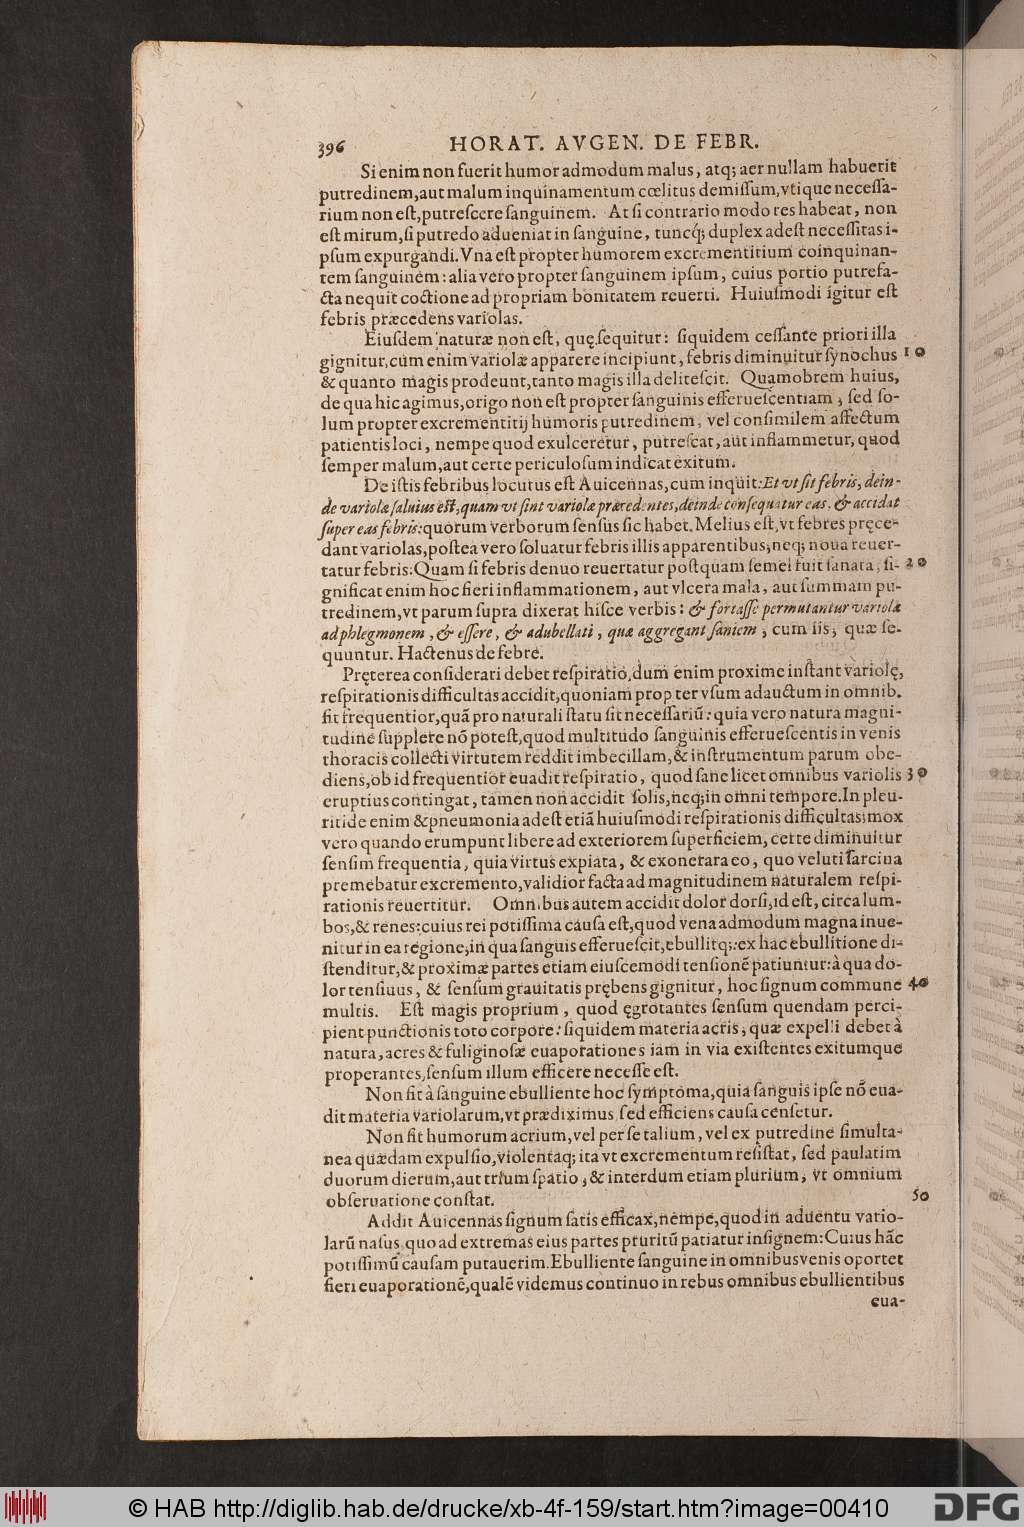 396 HORAT. AVGEN. DE FEBR.
Si enim non fuerit humor admodum malus, atq; aer nullam habuerit
putredinem,aut malum inquinamentum cœlitus demiſſum,vtique neceſſa-
rium non eſt,putreſcere ſanguinem. At ſi contrario modo res habeat, non
eſt mirum,ſi putredo adueniat in ſanguine, tuncq́; duplex adeſt neceſſitas i-
pſum expurgandi.Vna eſt propter humorem excrementitium coinquinan-
tem ſanguinem:alia vero propter ſanguinem ipſum, cuius portio putrefa-
cta nequit coctione ad propriam bonitatem reuerti. Huiuſmodi igitur eſt
febris præcedens variolas.
Eiuſdem naturæ non eſt, quę ſequitur: ſiquidem ceſſante priori illa
gignitur,cum enim variolæ apparere incipiunt, febris diminuitur ſynochus 10
& quanto magis prodeunt,tanto magis illa deliteſcit. Quamobrem huius,
de qua hic agimus,origo non eſt propter ſanguinis efferueſcentiam, ſed ſo-
lum propter excrementitij humoris putredinem, vel conſimilem affectum
patientis loci, nempe quod exulceretur, putreſcat, aut inflammetur, quod
ſemper malum,aut certe periculoſum indicat exitum.
De iſtis febribus locutus eſt Auicennas,cum inquit:Et vt ſit febris, dein-
de variolæ ſaluius est,quam vt ſint variolæ præcedentes,deinde conſequatur eas. & accidat
ſuper eas febris:quorum verborum ſenſus ſic habet. Melius eſt,vt febres pręce-
dant variolas,poſtea vero ſoluatur febris illis apparentibus,neq; noua reuer-
tatur febris:Quam ſi febris denuo reuertatur poſtquam ſemel fuit ſanata, ſi- 20
gnificat enim hoc fieri inflammationem, aut vlcera mala, aut ſummam pu-
tredinem,vt parum ſupra dixerat hiſce verbis: & fortaſſe permutantur variolæ
ad phlegmonem, & eſſere, & adubellati, quæ aggregant ſaniem, cum iis, quæ ſe-
quuntur. Hactenus de febre.
Pręterea conſiderari debet reſpiratio,dum enim proxime inſtant variolę,
reſpirationis difficultas accidit,quoniam propter vſum adauctum in omnib.
fit frequentior,quã pro naturali ſtatu ſit neceſſariũ: quia vero natura magni-
tudine ſupplere nõ poteſt,quod multitudo ſanguinis efferueſcentis in venis
thoracis collecti virtutem reddit imbecillam,& inſtrumentum parum obe-
diens,ob id frequentior euadit reſpiratio, quod ſane licet omnibus variolis 30
eruptius contingat, tamen non accidit ſolis,neq; in omni tempore.In pleu-
ritide enim & pneumonia adeſt etiã huiuſmodi reſpirationis difficultas: mox
vero quando erumpunt libere ad exteriorem ſuperficiem, certe diminuitur
ſenſim frequentia, quia virtus expiata, & exonerara eo, quo veluti ſarcina
premebatur excremento,validior facta ad magnitudinem naturalem reſpi-
rationis reuertitur. Omnibus autem accidit dolor dorſi,id eſt, circa lum-
bos,& renes:cuius rei potiſſima cauſa eſt,quod vena admodum magna inue-
nitur in ea regione,in qua ſanguis efferueſcit,ebullitq;:ex hac ebullitione di-
ſtenditur,& proximæ partes etiam eiuſcemodi tenſionẽ patiuntur:à qua do-
lor tenſiuus, & ſenſum grauitatis prębens gignitur, hoc ſignum commune 40
multis. Eſt magis proprium, quod ęgrotantes ſenſum quendam perci-
pient punctionis toto corpore: ſiquidem materia acris, quæ expelli debet à
natura, acres & fuliginoſæ euaporationes iam in via exiſtentes exitumque
properantes,ſenſum illum efficere neceſſe eſt.
Non fit à ſanguine ebulliente hoc ſymptoma,quia ſanguis ipſe nõ eua-
dit materia variolarum,vt prædiximus ſed efficiens cauſa cenſetur.
Non fit humorum acrium,vel per ſe talium, vel ex putredine ſimulta-
nea quædam expulſio,violentaq; ita vt excrementum reſiſtat, ſed paulatim
duorum dierum,aut trium ſpatio, & interdum etiam plurium, vt omnium
obſeruatione conſtat. 50
Addit Auicennas ſignum ſatis efficax,nempe,quod in aduentu vario-
larũ naſus quo ad extremas eius partes pruritũ patiatur inſignem:Cuius hãc
potiſſimũ cauſam putauerim.Ebulliente ſanguine in omnibus venis oportet
fieri euaporationẽ,qualẽ videmus continuo in rebus omnibus ebullientibus
eua-
© HAB http://diglib.hab.de/drucke/xb-4f-159/start.htm?image=00410
DFG